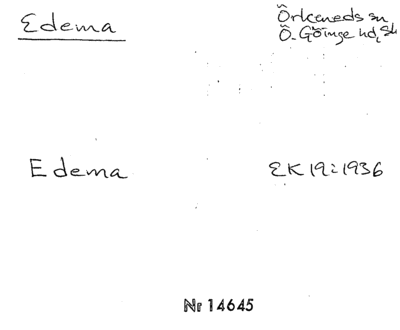 Edema
Örkeneds sn
Ö. Göinge hd, Sk
Edema
EK 19:1936
Nr 14645